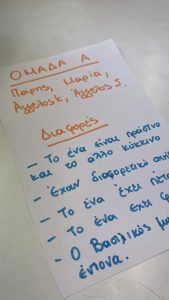 ΟΜΑΔΑ Α
Πάρης, Μαρία,
Άγγελος Κ, Άγγελος Σ.
Διαφορές
- Το ένα είναι πράσινο
και το άλλο κόκκινο
- Έχουν διαφορετικό
- Το ένα έχει
- Το ένα έχει
- Ο Βασιλικός
έντονα.